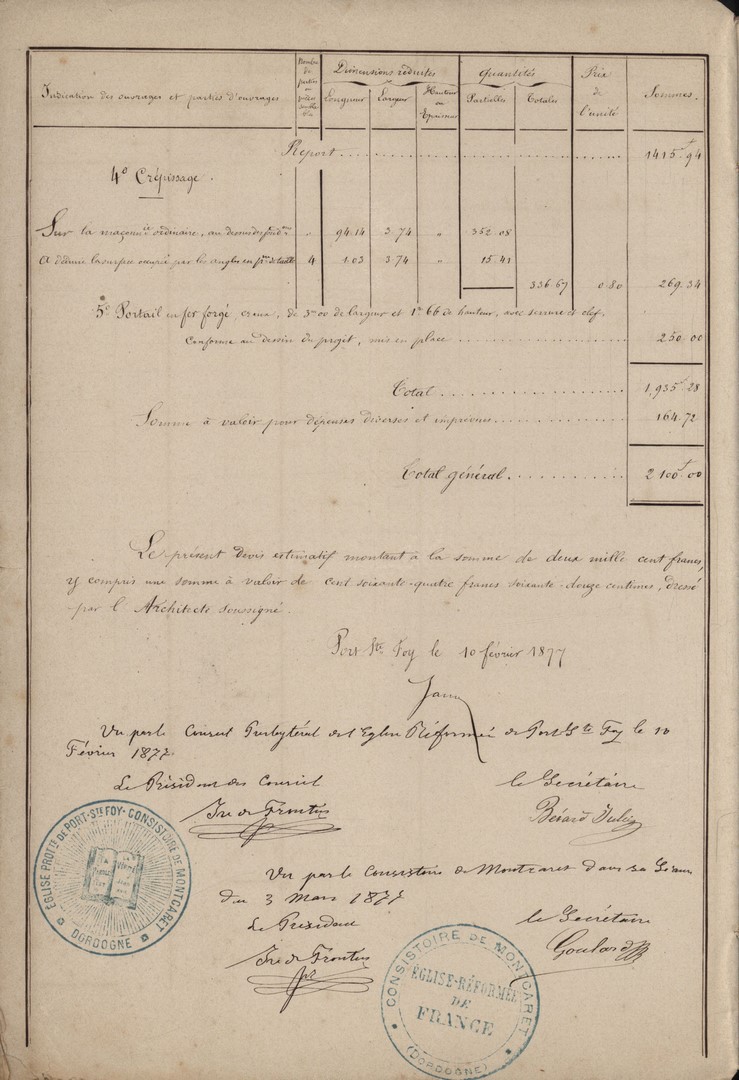 Indication des ouvrages et parties d'ouvrages
Nombre de parties ou pièces
Dimensions réduites
Longueur
Largeur
Hauteur ou Epaisseur
Quantités
Partielles
Totales
Prix de l'unité
Sommes.
Report 1415f 94
4° Crépissage.
Sur la maçonie ordinaire, au dessus des fond.ons " 94.14 3.74 " 352.08
A déduire la surface occupée par les angles en pre de taille 4 1.03 3.74 " 15.41
336.67 0.80 269.34
5° Portail en fer forgé de 3m00 de largeur et 1m 66 de hauteur, avec serrure et clef,
conforme au dessin du projet, mis en place 250.00
Total 1,935f 28
Somme à valoir pour dépenses diverses et imprévues 164.72
Total général 2100f 00
Le présent devis estimatif montant à la somme de deux mille cent francs,
y compris une somme à valoir de cent soixante-quatre francs soixante-douze centimes, dressé
par l'Architecte soussigné.
Port Ste Foy le 10 février 1877
Vu par le Conseil Presbytéral de l'Eglise Réformée de Port Ste Foy le 10
Février 1877
Le Président du Conseil
le Secrétaire
Bérard Jules
ÉGLISE PROTTE DE PORT-STE FOY - CONSISTOIRE DE MONTCARET
DORDOGNE
Vu par le Consistoire de Montcaret dans sa Séance
du 3 Mars 1877
Le Président
le Secrétaire
Goulard
CONSISTOIRE DE MONTCARET
ÉGLISE-RÉFORMÉE
DE
FRANCE
(DORDOGNE)